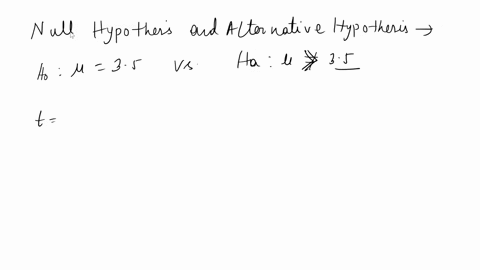 Null Hypothesis and Alternative Hypothesis →
H₀ : μ = 3.5 vs Ha : μ > 3.5
t =